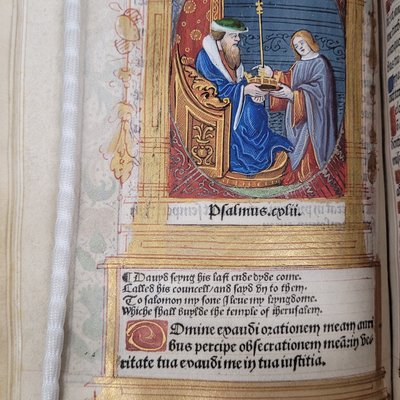 Psalmus.cxlii.
¶ Dauyd seyng his last ende dyde come.
Called his councell / and sayd vn to them.
To salomon my sone J leue my kyngdome.
Whiche shall buylde the temple of iherusalem.
Domine exaudi orationem meam auri
bus percipe obsecrationem meā: in ve
ritate tua exaudi me in tua iustitia.